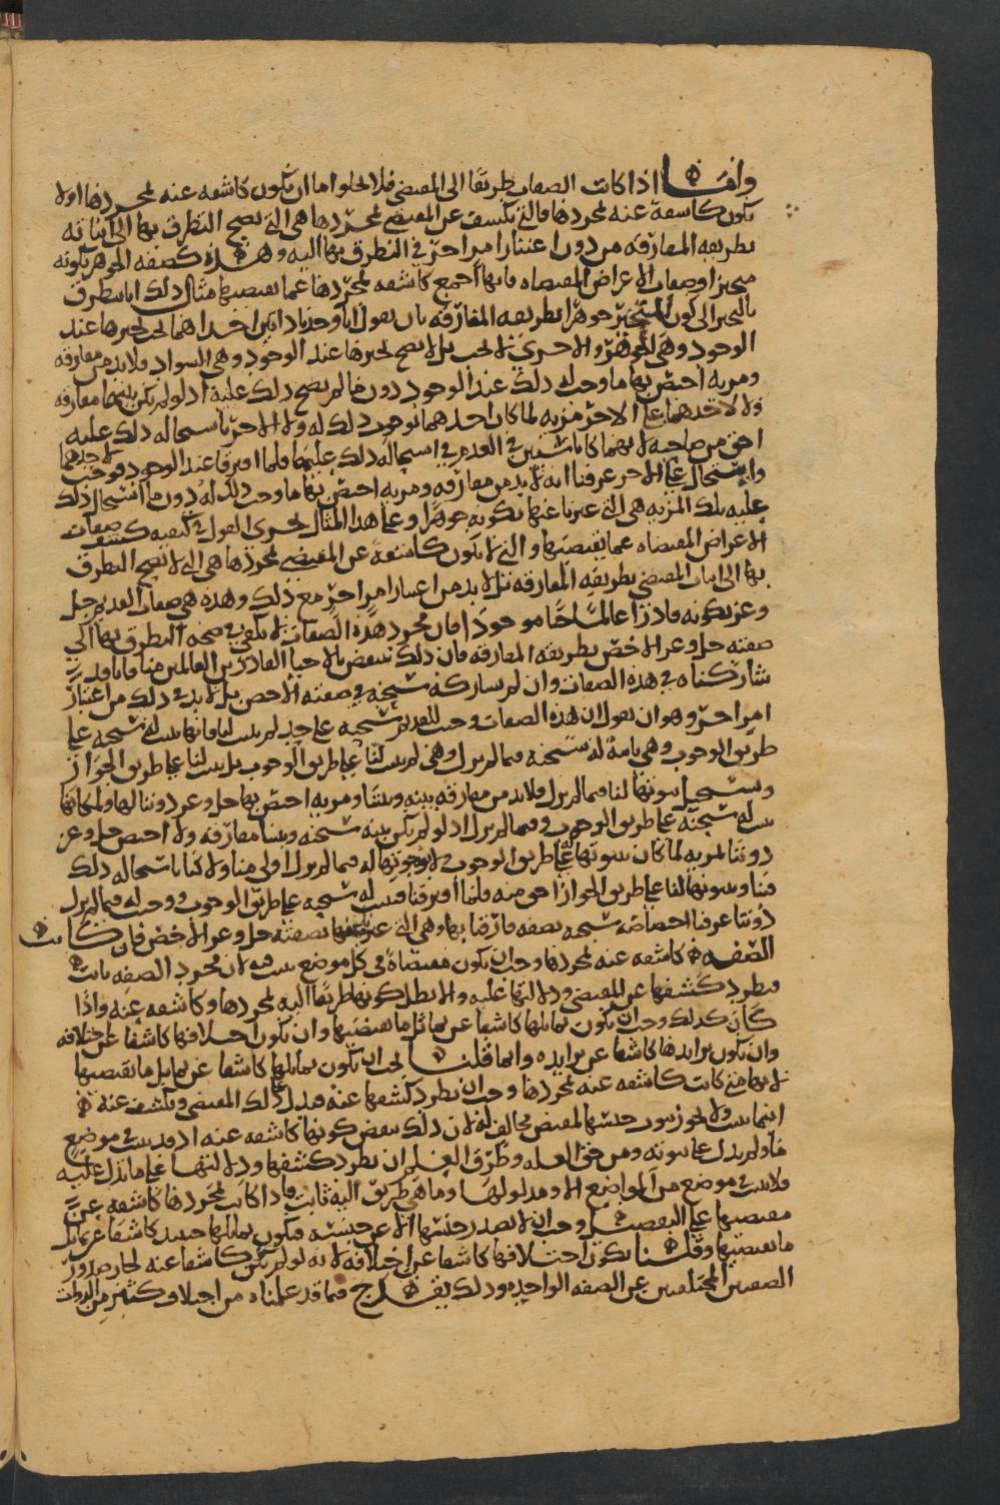 وانما اذا كانت الصفات طريقا الى المقتضى فلا يخلوا اما ان تكون كاشفه عنه لمجردها اولا
تكون كاشفة عنه لمجردها فالتي تكشف عن المقتضي لمجردها هي التي يصح التطرق بها الى اثباته
بطريقه المفارقه من دون اعتبار امر اخر في التطرق بها اليه وهذه كصفه الجوهر بكونه
متحيزا وصفات الاعراض المقتضاه فانها اجمع كاشفه لمجردها عما يقتضيها مثال ذلك انا نتطرق
بالتحيز الى كون المتحيز جوهرا بطريقه المفارقه بان نقول انا وجدنا ذاتين احداهما يجب تحيزها عند
الوجود وهي الجوهر والاخرى لا يجب بل لا يصح تحيزها عند الوجود وهي السواد فلا بد من مفارقه
ومزيه اختص بها ما وجب له ذلك عند الوجود دون ما لم يصح ذلك عليه اذ لو لم يكن بينهما مفارقه
ولا لاحدهما على الاخر مزيه لما كان احدهما بوجوب ذلك له ولا الاخر باستحاله ذلك عليه
احق من صاحبه لانهما كانا شيئين في العدم في استحاله ذلك عليهما فلما افترقا عند الوجود فوجب لاحدهما
واستحال على الاخر عرفنا انه لا بد من مفارقه ومزيه اختص بها ما وجب ذلك له دون ما استحال ذلك
عليه تلك المزيه هي التي عبرنا عنها بكونه جوهرا وعلى هذا المثال يجرى القول في كيفيه كشف صفات
الاعراض المقتضاه عما يقتضيها والتي لا تكون كاشفة عن المقتضي لمجردها هي التي لا يصح التطرق
بها الى اثبات المقتضي بطريقه المفارقه بل لا بد من اعتبار امر اخر مع ذلك وهذه هي صفات القديم جل
وعز بكونه قادرا عالما حيا موجودا فان مجرد هذه الصفات لا يكفي في صحه التطرق بها الى
صفته جل وعز الاخص بطريقه المفارقه فان ذلك ينتقض بالاحيا القادرين العالمين منا فانا قد
شاركناه في هذه الصفات وان لم نشاركه سبحنه في صفته الاخص بل لا بد في ذلك من اعتبار
امر اخر وهو ان نقول ان هذه الصفات وجبت للقديم سبحنه على حد لم يثبت لنا فانها ثبتت له سبحنه على
طريق الوجوب وهي ثابتة له سبحنه فيما لم يزل وهي لم تثبت لنا على طريق الوجوب بل ثبتت لنا على طريق الجواز
ويستحيل ثبوتها لنا فيما لم يزل فلا بد من مفارقه بينه وبيننا ومزيه اختص بها جل وعز دوننا لها ولمكانها
ثبتت له سبحنه على طريق الوجوب وفيما لم يزل اذ لو لم يكن بينه سبحنه وبيننا مفارقه ولا اختص جل وعز
دوننا لمزيه لما كان ثبوتها له على طريق الوجوب ولا بوجوبها له فيما لم يزل اولى منا ولا كنا باستحاله ذلك
فينا وثبوتها لنا على طريق الجواز احق منه فلما افترقنا فثبت له سبحنه على طريق الوجوب ووجبت له فيما لم يزل
دوننا عرفنا اختصاصه سبحنه بصفه فارقنا بها وهي التي عبرنا عنها بصفته جل وعز الاخص فان كانت
الصفه كاشفه عنه لمجردها وجب ان تكون مقتضاة في كل موضع ثبتت فيه لان مجرد الصفه ثابت
فيطرد كشفها عن المقتضي ودلالتها عليه والا بطل كونها طريقا اليه لمجردها وكاشفه عنه واذا
كان كذلك وجب ان تكون تماثلها كاشفا عن تماثل ما يقتضيها وان تكون اختلافها كاشفا عن اختلافه
وان يكون تزايدها كاشفا عن تزايده وانما قلنا يجب ان يكون تماثلها كاشفا عن تماثل ما يقتضيها
لانها متى كانت كاشفه عنه لمجردها وجب ان يطرد كشفها عنه فيدل ذلك المقتضي وتكشف عنه
اينما ثبتت ولا يجوز ثبوت جنسها لمقتض مخالف له لان ذلك ينقض كونها كاشفه عنه اذ قد ثبتت في موضع
ما ولم يدل على ثبوته ومن حق العله وطرق العلم ان يطرد كشفها ودلالتها على ما تدل عليه
فلا تثبت في موضع من المواضع الا ومدلولها وما هي طريق اليه ثابت فاذا كانت لمجردها كاشفه عن
مقتضيها على التفصيل وجب ان لا يصدر جنسها الا عن جنسه فيكون تماثلها حينئذ كاشفا عن تماثل
ما يقتضيها وقلنا يكون اختلافها كاشفا عن اختلافه لانه لو لم يكن كاشفا عنه لجاز صدور
الصفتين المختلفتين عن الصفه الواحده وذلك يقدح فيما قد علمناه من اختلاف كثير من الذوات